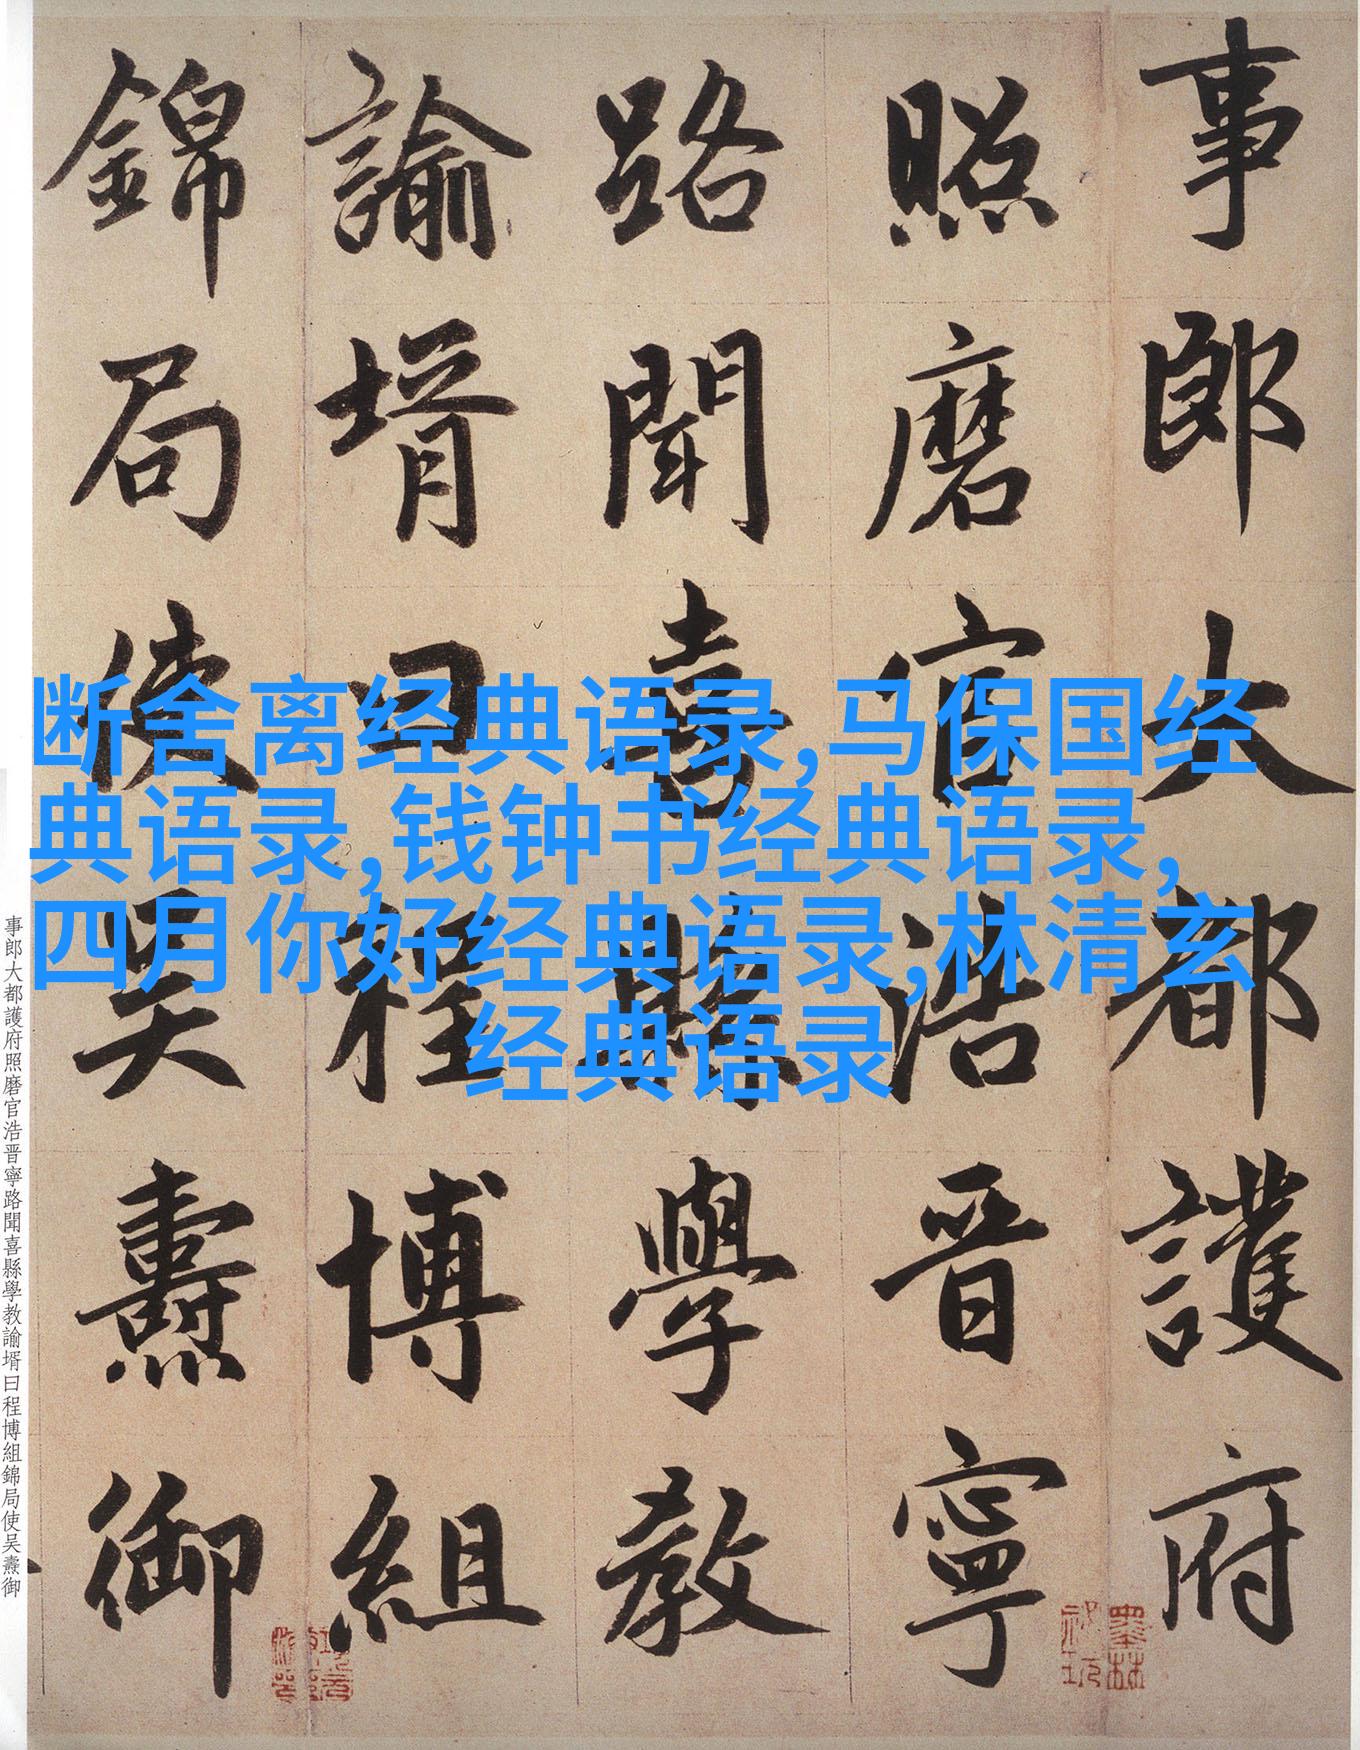 事郎大都護府
照磨官浩晋寧
路聞喜縣學教
諭壻曰程博組
錦局使吴燾御
断舍离经典语录,马保国经
典语录,钱钟书经典语录,
四月你好经典语录,林清玄
经典语录
事郎大都護府照磨官浩晋寧路聞喜縣學教諭壻曰程博組錦局使吴燾御